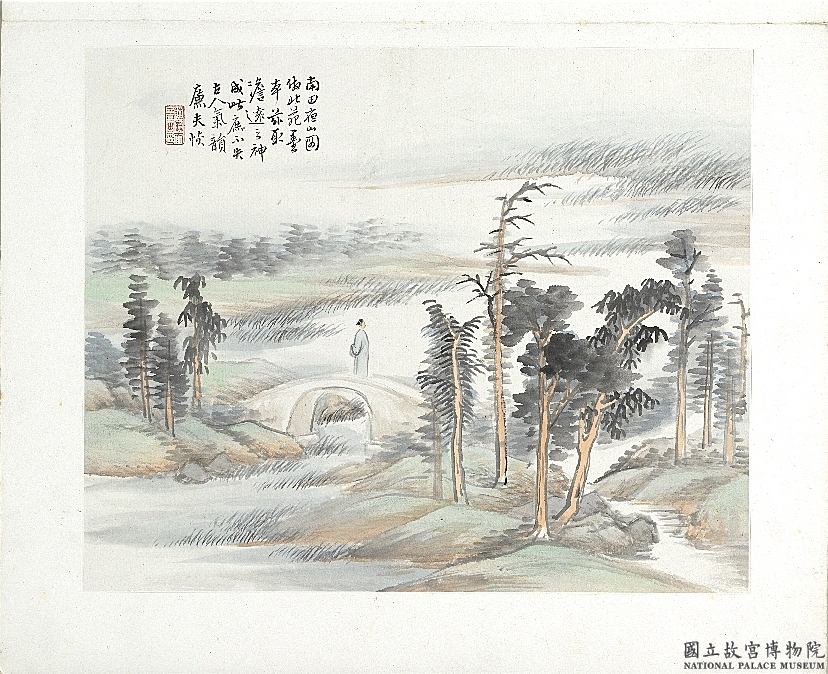 南田山圖
倣北苑畫
本茲取
澹遠之神
成此庶不失
古人氣韻
廉夫恢
國立故宮博物院
NATIONAL PALACE MUSEUM